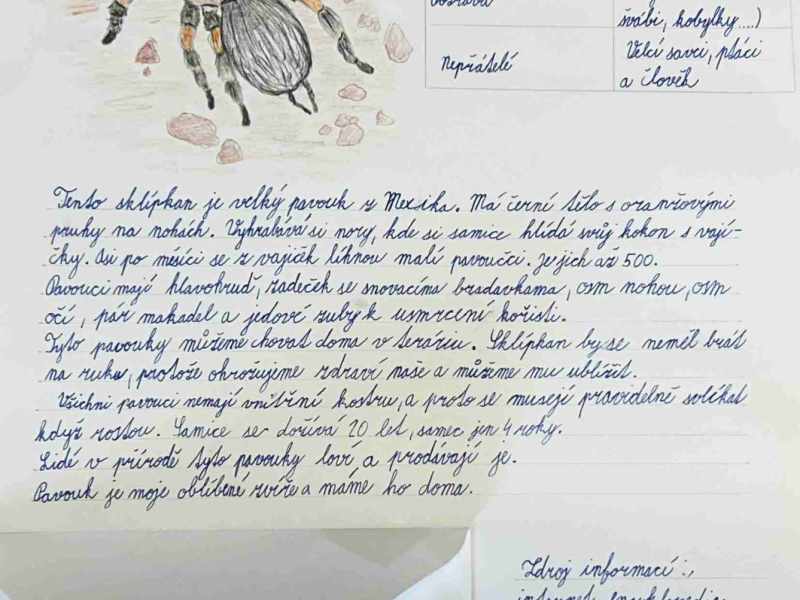 švábi, kobylky....)
Nepřátelé
Velcí savci, ptáci
a člověk
Tento sklípkan je velký pavouk z Mexika. Má černí tělo s oranžovými
pruhy na nohách. Vyhrabává si nory, kde si samice hlídá svůj kokon s vají-
čky. Asi po měsíci se z vajíček líhnou malí pavoučci. Je jich až 500.
Pavouci mají hlavohruď, zadeček se snovacíma bradavkama, osm nohou, osm
očí, pár makadel a jedoví zuby k usmrcení kořisti.
Tyto pavouky můžeme chovat doma v teráriu. Sklípkan by se neměl brát
na ruku, protože ohrožujeme zdraví naše a můžeme mu ublížit.
Všichni pavouci nemají vnitřní kostru, a proto se musejí pravidelně svlékat
když rostou. Samice se dožívá 20 let, samec jen 4 roky.
Lidé v přírodě tyto pavouky loví a prodávají je.
Pavouk je moje oblíbené zvíře a máme ho doma.
Zdroj informací:,